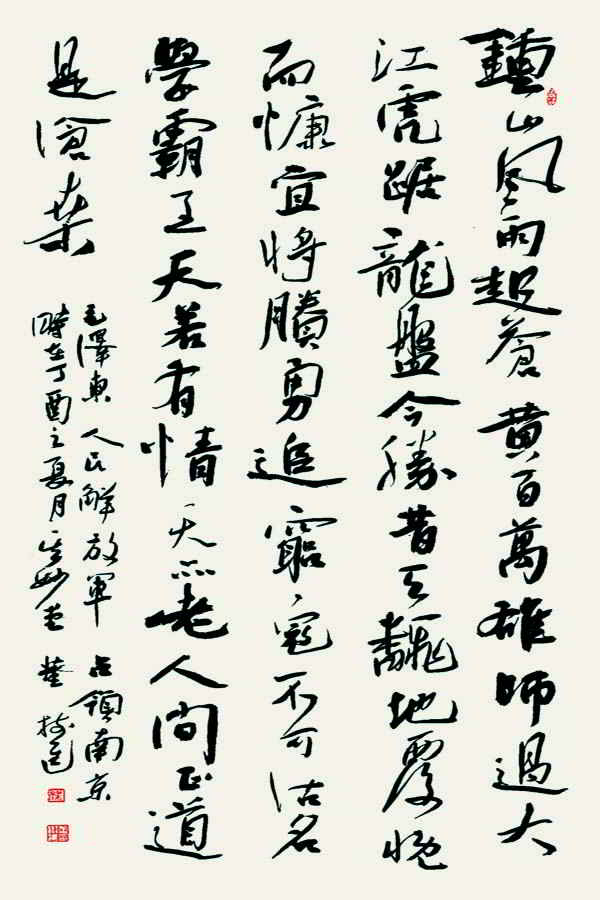 鍾山風雨起蒼黄百萬雄師過大
江虎踞龍盤今勝昔天飜地覆慨
而慷宜將賸勇追窮寇不可沽名
學霸王天若有情天亦老人間正道
是滄桑
毛澤東 人民解放軍 占領南京
時在丁酉之夏月